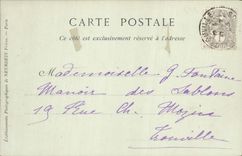 CARTE POSTALE
Ce côté est exclusivement réservé à l'adresse
Mademoiselle G. Fontaine
Manoir des Sablons
19 Rue Ch. Mozin
Trouville
Etablissements Photographiques de NEURDEIN Frères. — Paris